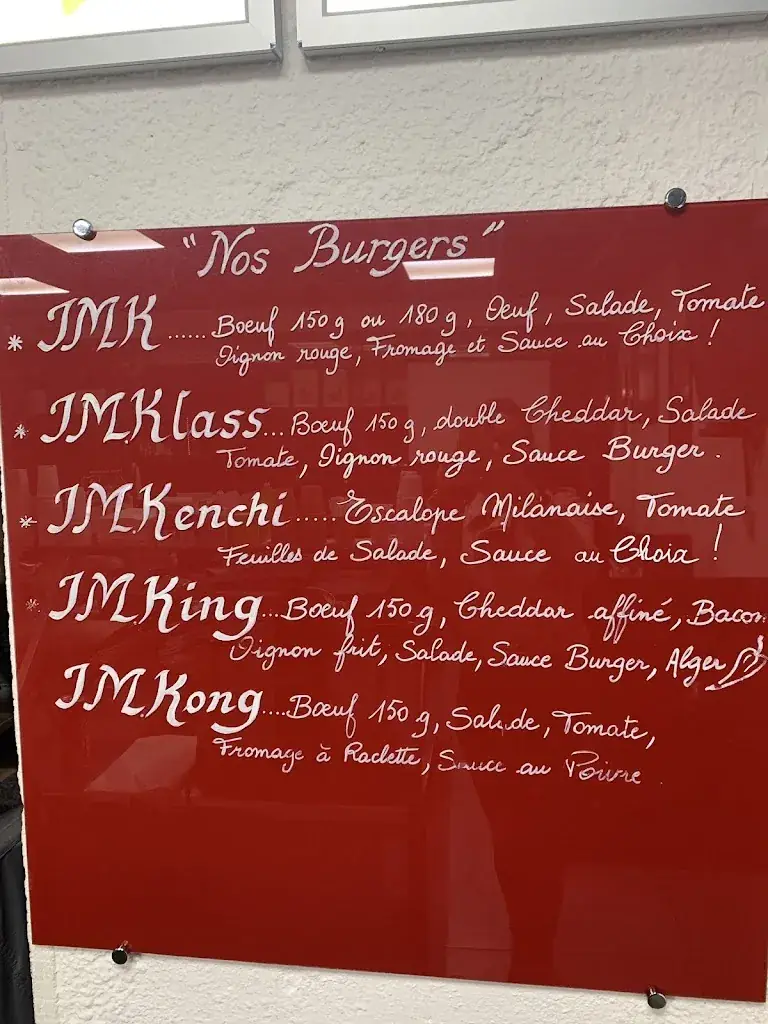 "Nos Burgers"
* IMK ...... Bœuf 150 g ou 180 g, Oeuf, Salade, Tomate
Oignon rouge, Fromage et Sauce au Choix !
* IMKlass... Bœuf 150 g, double Cheddar, Salade
Tomate, Oignon rouge, Sauce Burger.
* IM.Kenchi ..... Escalope Milanaise, Tomate
Feuilles de Salade, Sauce au Choix !
* IM.King... Bœuf 150 g, Cheddar affiné, Bacon,
Oignon frit, Salade, Sauce Burger, Alger
IM.Kong.... Bœuf 150 g, Salade, Tomate,
Fromage à Raclette, Sauce au Poivre.